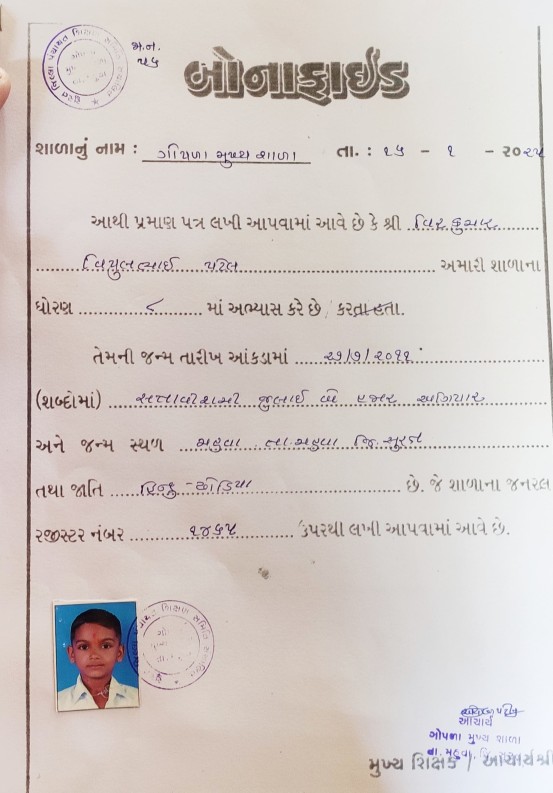 મ.ન.
૫૬
બોનાફાઈડ
શાળાનું નામ : ગોપળા મુખ્ય શાળા તા. : ૨૫ - ૧ - ૨૦૨૫
આથી પ્રમાણ પત્ર લખી આપવામાં આવે છે કે શ્રી વિરકુમાર
વિપુલભાઈ પટેલ અમારી શાળાના
ધોરણ ૮ માં અભ્યાસ કરે છે / કરતા હતા.
તેમની જન્મ તારીખ આંકડામાં ૨૭/૭/૨૦૧૧
(શબ્દોમાં) સત્તાવીસમી જુલાઈ બે હજાર અગિયાર
અને જન્મ સ્થળ મહુવા તા. મહુવા જિ. સુરત
તથા જાતિ હિન્દુ - ધોડિયા છે. જે શાળાના જનરલ
રજીસ્ટર નંબર ૧૪૬૫ ઉપરથી લખી આપવામાં આવે છે.
આચાર્ય
ગોપળા મુખ્ય શાળા
તા. મહુવા, જિ. સુરત
મુખ્ય શિક્ષક / આચાર્યશ્રી